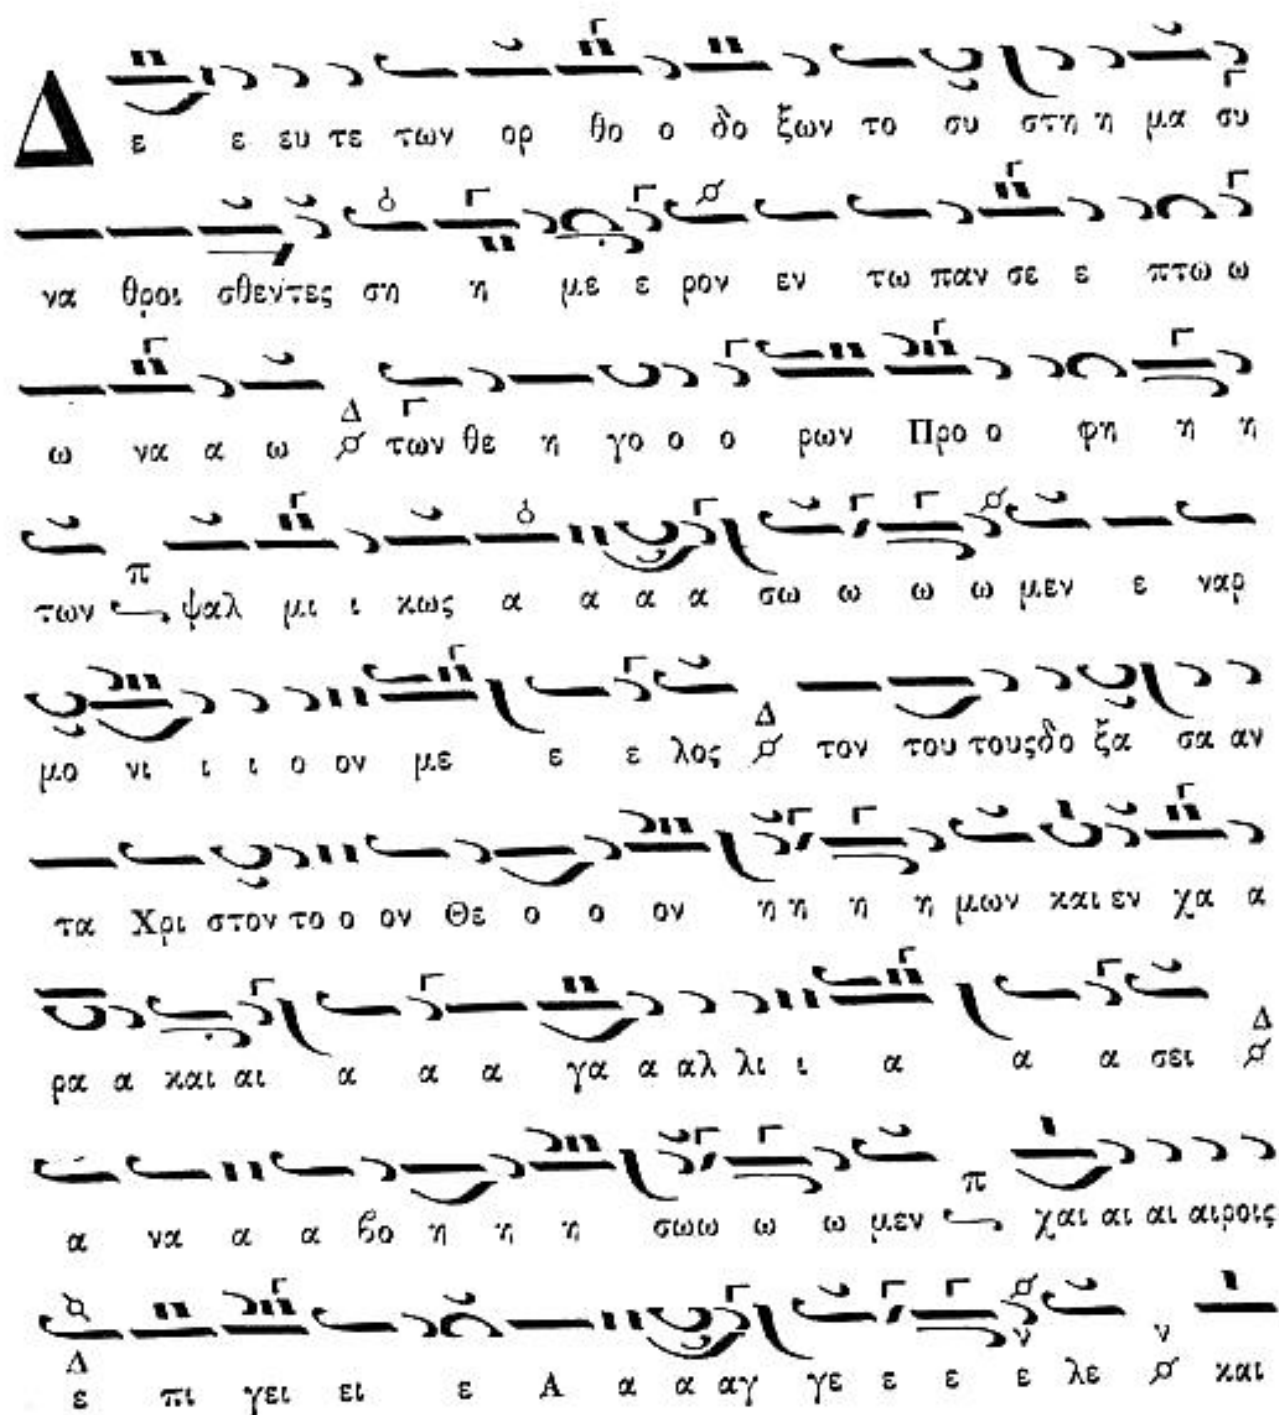 Δ ε ε ευ τε των ορ θο ο δο ξων το συ στη η μα συ
να θροι σθεντες ση η με ε ρον εν τω παν σε ε πτω ω
ω να α ω Δ των θε η γο ο ο ρων Προ ο φη η η
των π ψαλ μι ι κως α α α α σω ω ω ω μεν ε ναρ
μο νι ι ι ο ον με ε ε λος Δ τον του τους δο ξα σα αν
τα Χρι στον το ο ον Θε ο ο ον η η η η μων και εν χα α
ρα α και αι α α α γα α αλ λι ι α α α σει Δ
α να α α βο η η η σω ω ω ω μεν π χαι αι αι αι ροις
Δ ε πι γει ει ε Α α α αγ γε ε ε ν ε λε ν και